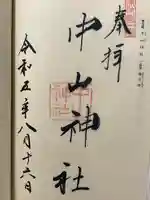 奉拝
中山神社
令和五年八月十六日